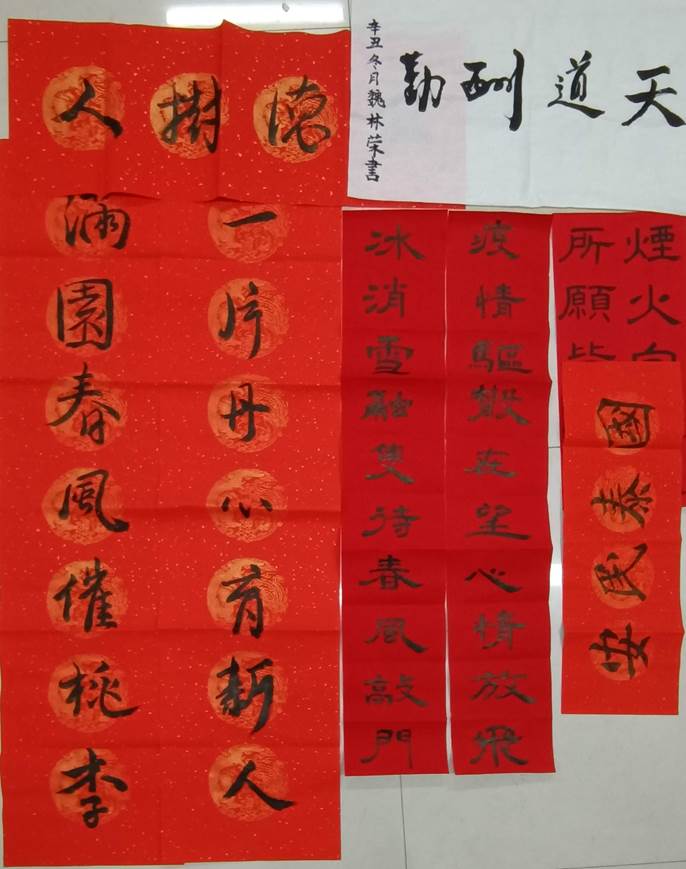 德樹人
天道酬勤
辛丑冬月魏林榮書
一片丹心育新人
滿園春風催桃李
疫情驅散在望心情放飛
冰消雪融隻待春風敲門
煙火向
所願皆
國泰民安